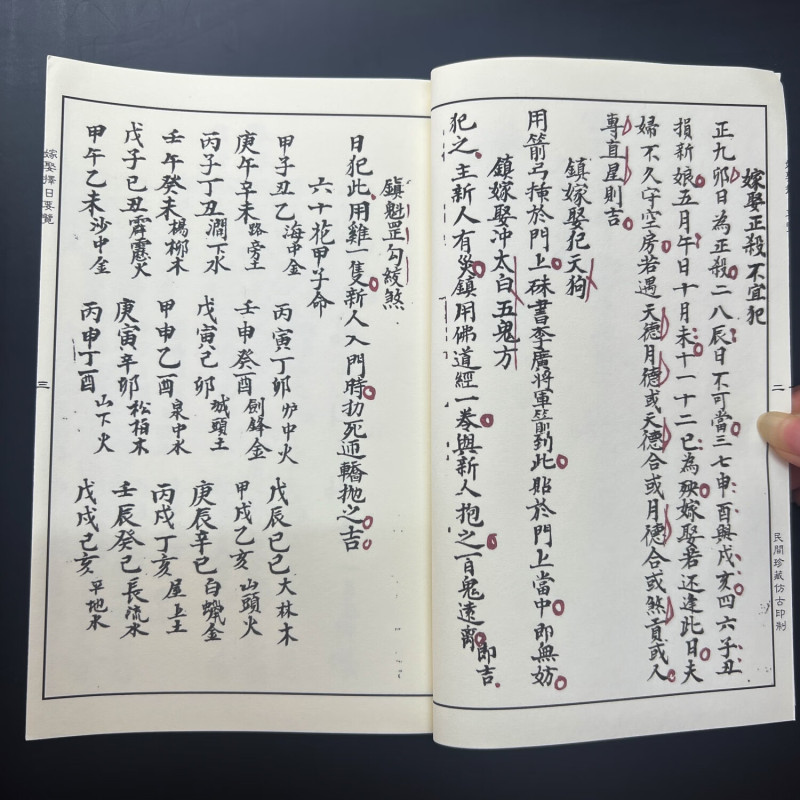 嫁娶正殺不宜犯
正九卯日為正殺二八辰日不可當三七申酉與戌亥四六子丑
損新娘五月午日十月未十一十二巳為殃嫁娶若还逢此日夫
婦不久守空房若遇天德月德或天德合或月德合或煞貢或人
專直星則吉
鎮嫁娶犯天狗
用箭弓掛於門上硃書李廣將軍箭到此貼於門上當中即無妨
鎮嫁娶冲太白五鬼方
犯之主新人有災鎮用佛道經一卷與新人抱之百鬼遠离即吉
二
民間珍藏仿古印制
鎮魁罡勾絞煞
日犯此用雞一隻新人入門時扐死迊轎拋之吉
六十花甲子命
甲子丑乙海中金 丙寅丁卯炉中火 戊辰己巳大林木
庚午辛未路旁土 壬申癸酉劍鋒金 甲戌乙亥山頭火
丙子丁丑澗下水 戊寅己卯城頭土 庚辰辛巳白蠟金
壬午癸未楊柳木 甲申乙酉泉中水 丙戌丁亥屋上土
戊子己丑霹靂火 庚寅辛卯松柏木 壬辰癸巳長流水
甲午乙未沙中金 丙申丁酉山下火 戊戌己亥平地木
嫁娶擇日要覽
三